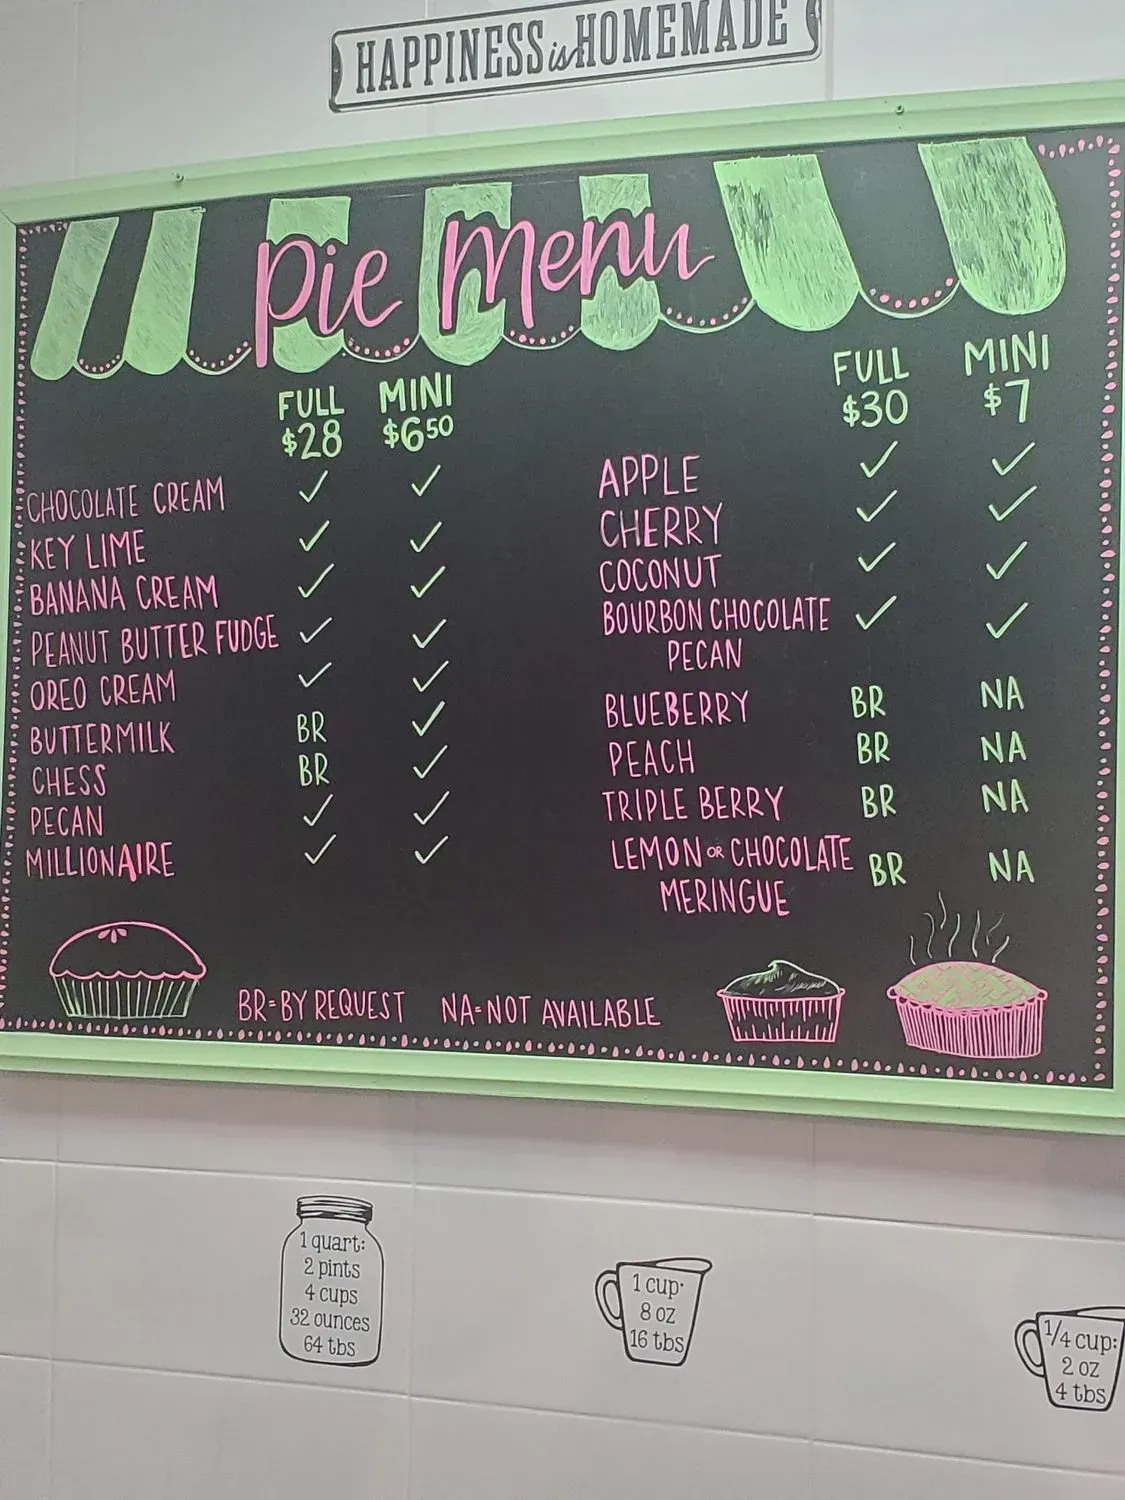 HAPPINESS is HOMEMADE
Pie Menu
FULL MINI
$28 $6.50
CHOCOLATE CREAM ✓ ✓
KEY LIME ✓ ✓
BANANA CREAM ✓ ✓
PEANUT BUTTER FUDGE ✓ ✓
OREO CREAM ✓ ✓
BUTTERMILK BR ✓
CHESS BR ✓
PECAN ✓ ✓
MILLIONAIRE ✓ ✓
FULL MINI
$30 $7
APPLE ✓ ✓
CHERRY ✓ ✓
COCONUT ✓ ✓
BOURBON CHOCOLATE ✓ ✓
PECAN
BLUEBERRY BR NA
PEACH BR NA
TRIPLE BERRY BR NA
LEMON OR CHOCOLATE BR NA
MERINGUE
BR=BY REQUEST NA=NOT AVAILABLE
1 quart:
2 pints
4 cups
32 ounces
64 tbs
1 cup:
8 oz
16 tbs
1/4 cup:
2 oz
4 tbs